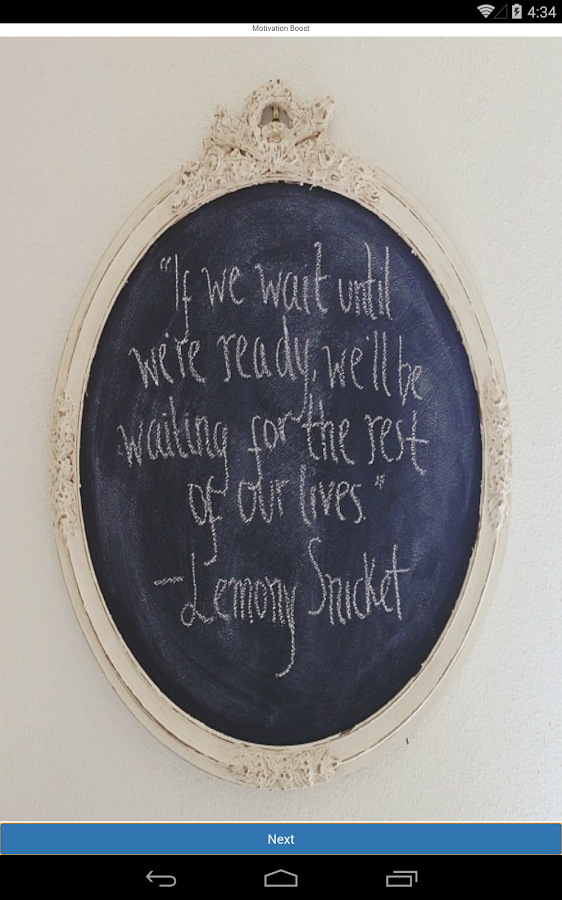 4:34
Motivation Boost
"If we wait until
we're ready, we'll be
waiting for the rest
of our lives."
-Lemony Snicket
Next